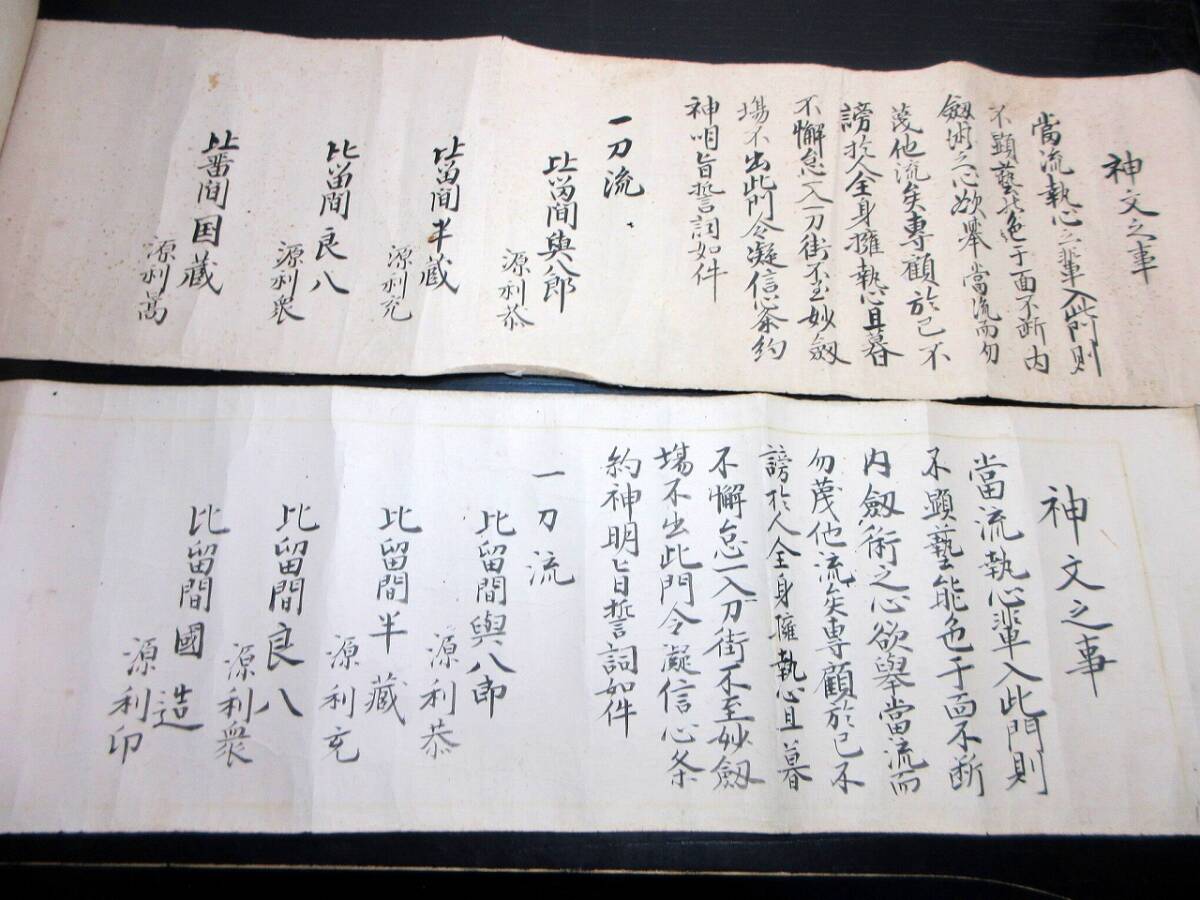 神文之事
當流執心之輩入此門則
不顕藝能色于面不断内
劔術之心欲舉當流而勿
蔑他流矣專顧於己不
謗於人全身擁執心且暮
不懈怠一入刀街不至妙劔
場不出此門令凝信心条約
神明旨誓詞如件
一刀流
比留間與八郎
源利恭
比留間半蔵
源利充
比留間良八
源利衆
比番間国蔵
源利
神文之事
當流執心輩入此門則
不顕藝能色于面不断
内劔術之心欲舉當流而
勿蔑他流矣專顧於己不
謗於人全身擁執心且暮
不懈怠一入刀街不至妙劔
場不出此門令凝信心条
約神明旨誓詞如件
一刀流
比留間與八郎
源利恭
比留間半藏
源利充
比留間良八
源利衆
比留間國造
源利印